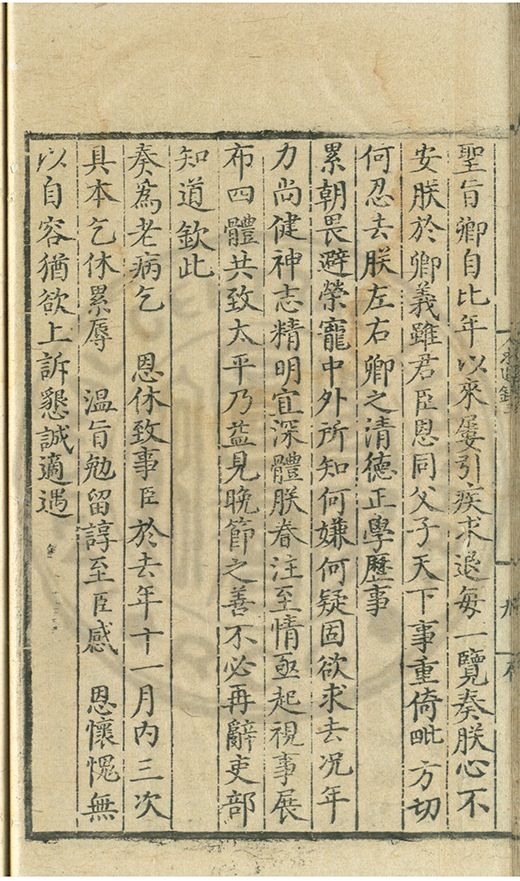 聖旨卿自比年以來屢引疾求退每一覽奏朕心不
安朕於卿義雖君臣恩同父子天下事重倚毗方切
何忍去朕左右卿之清德正學歷事
累朝畏避榮寵中外所知何嫌何疑固欲求去况年
力尚健神志精明宜深體朕眷注至情亟起視事展
布四體共致太平乃益見晚節之善不必再辭吏部
知道欽此
奏為老病乞　恩休致事臣於去年十一月內三次
具本乞休累辱　溫旨勉留諄至臣感　恩懷愧無
以自容猶欲上訴懇誠適遇